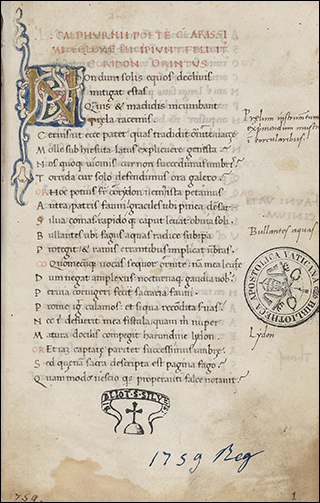 CALPHURNII POETE CLARISSI
MI EGLOGE INCIPIUNT FELICIT
CORIDON ORNITUS
Nondum solis equos declinis
mitigat estas
Quāuis & madidis incumbant
prela racemis
Cernis ut ecce pater quas tradidit ornite uacce
Molle sub hirsuta latus explicuere genista
Nos quoq; uicinis cur non succedimus umbris
Torrida cur solo defendimus ora galero
OR Hoc potius frater coridon nemora ista petamus
Antra patris fauni graciles ubi pinea densat
Silua comas rapidoq; caput leuat obuia soli
Bullantes ubi fagus aquas radice subipsa
Protegit & ramis errantibus implicat ūbras
CO Quocumq; uocas sequor ornite nā mea leuce
Dum negat amplexus nocturnaq; gaudia nobis
Peruia cornigeri fecit sacraria fauni
Prome igit calamos & siqua recondita seruas
Nec tē defuerit mea fistula quam mihi nuper
Matura docilis compegit harundine lydon
OR Et iam captate pariter successimus umbre
Sed quenam sacra descripta est pagina fago
Quam modo nescio quis properanti falce notauit
Prelum instrumentum
exprimendum mustum
torcularibus
Bullantes aquas
BIBLIOTHECA APOSTOLICA VATICANA
Lydon
BIBLIOT·S·SILVE
1759 Reg
1759.
1